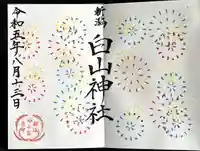 新潟
白山神社
令和五年八月十三日